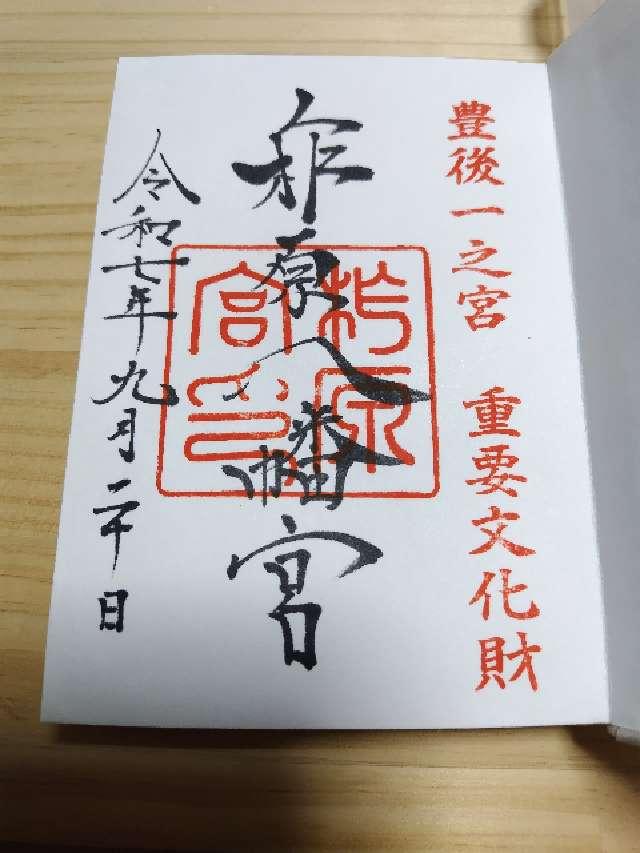 豊後一之宮 重要文化財
柞原八幡宮
柞原
宮印
令和七年九月二十日